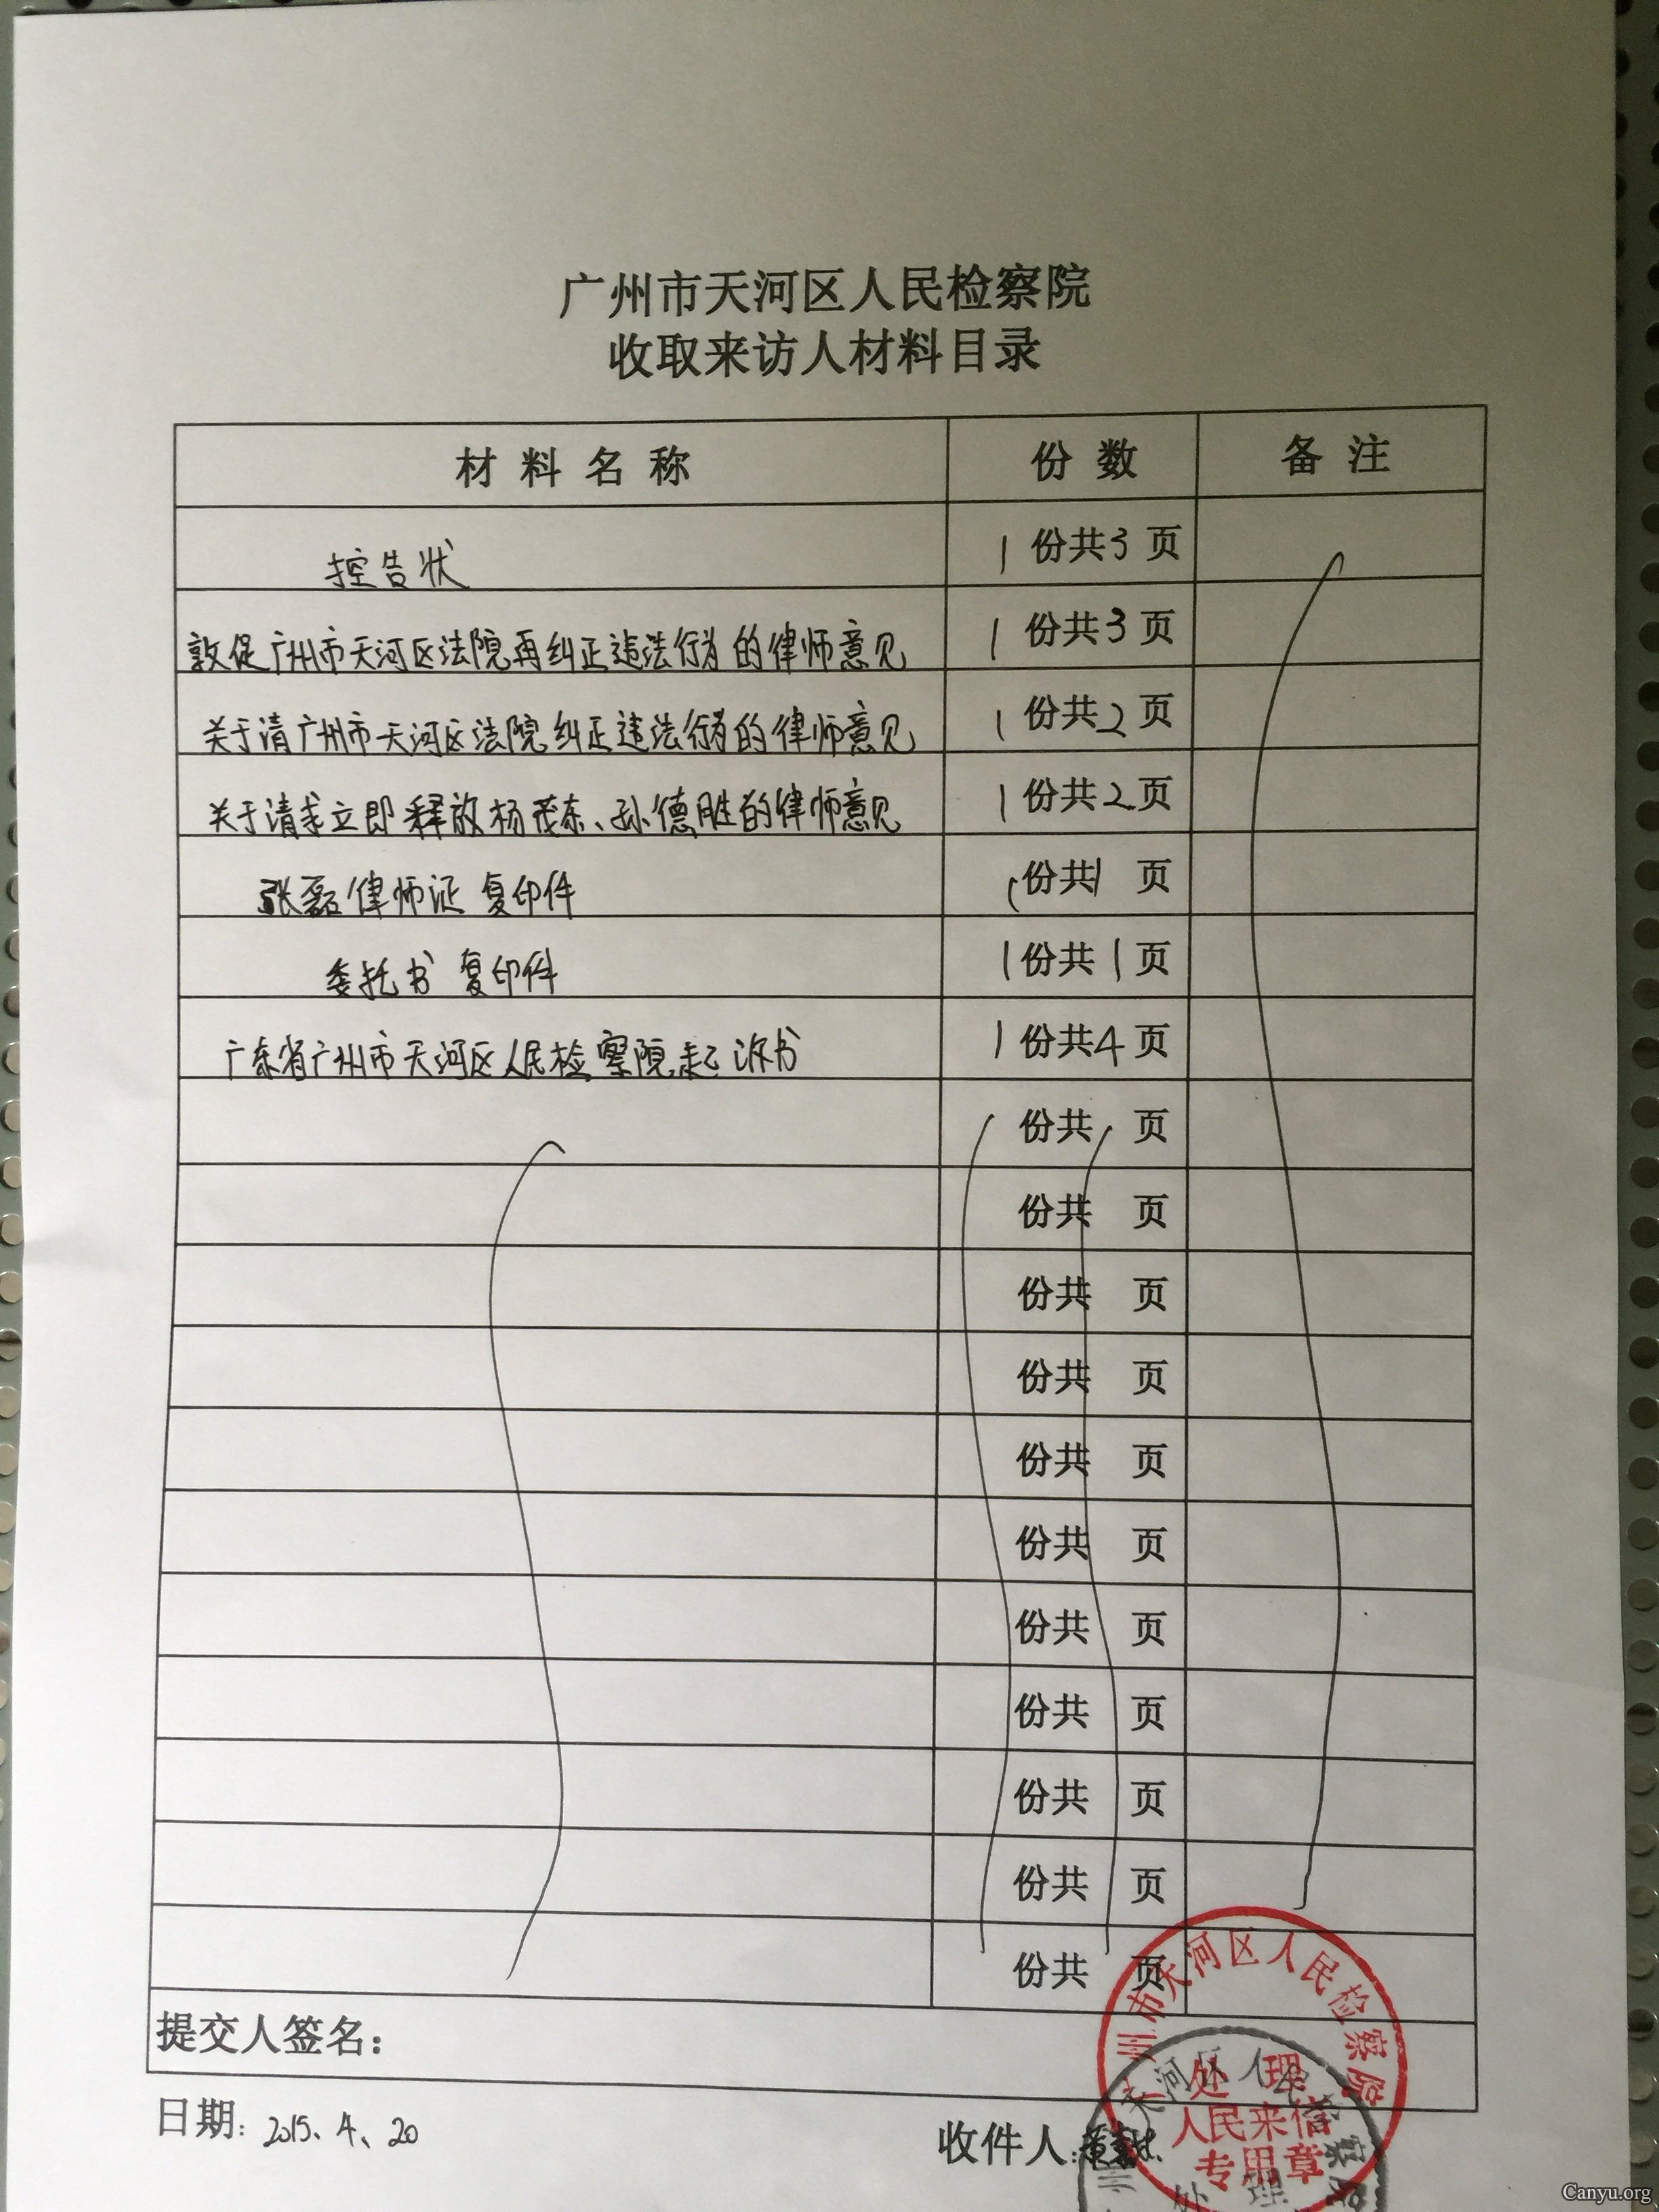 广州市天河区人民检察院
收取来访人材料目录
材料名称 份数 备注
控告状 1份共3页
敦促广州市天河区法院再纠正违法行为的律师意见 1份共3页
关于请广州市天河区法院纠正违法行为的律师意见 1份共2页
关于请求立即释放杨茂东、孙德胜的律师意见 1份共2页
张磊律师证复印件 1份共1页
委托书复印件 1份共1页
广东省广州市天河区人民检察院起诉书 1份共4页
份共 页
份共 页
份共 页
份共 页
份共 页
份共 页
份共 页
份共 页
份共 页
份共 页
份共 页
提交人签名：
日期：2015、4、20
收件人：
广州市天河区人民检察院
处理
人民来信
专用章
州 天河区人民 察院
处理
Canyu.org